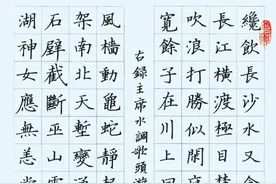 纔飲長沙水又
長江橫渡極目
吹浪打勝似閑
寬餘子在川上曰
右錄主席水調歌頭游
風檣動龜蛇靜起
架南北天塹變
石壁截斷巫山雲
湖神女應無恙當